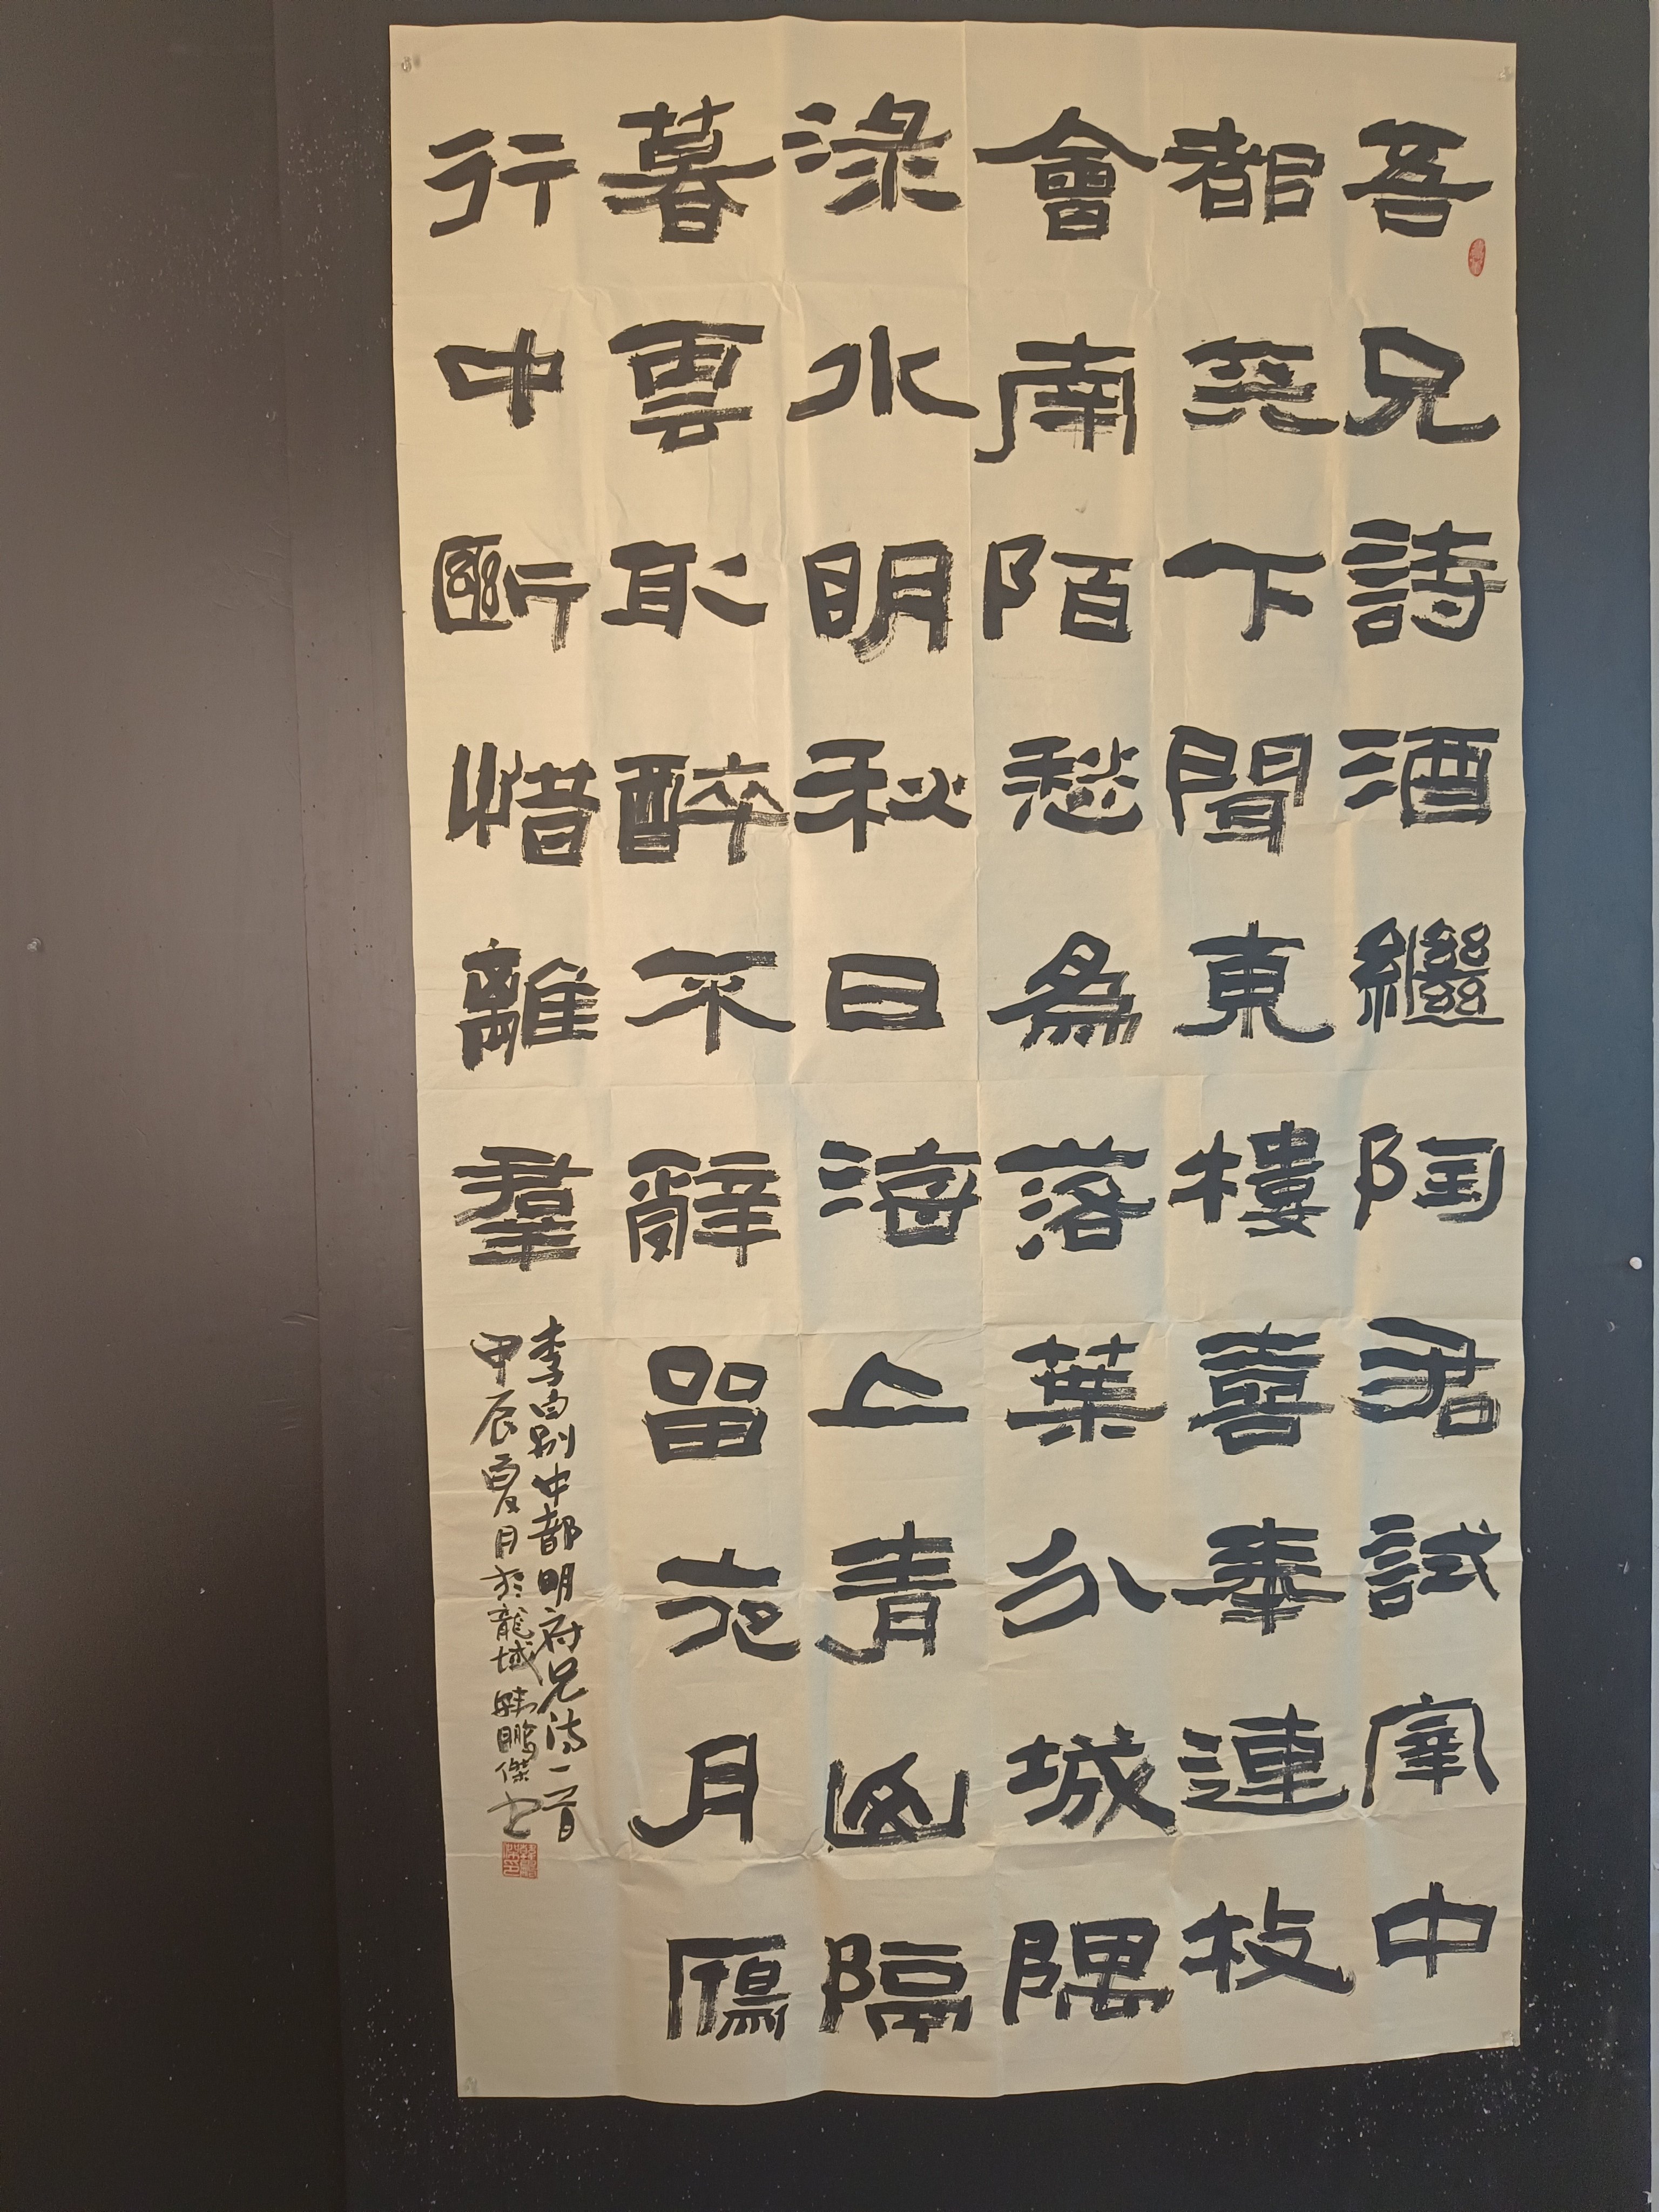 吾兄詩酒繼陶君試宰中
都天下聞東樓喜奉連枝
會南陌愁為落葉分城隅
淥水明秋日海上青山隔
暮雲取醉不辭留夜月鴈
行中斷惜離羣
李白別中都明府兄詩一首
甲辰夏月於龍城韓鵬傑書